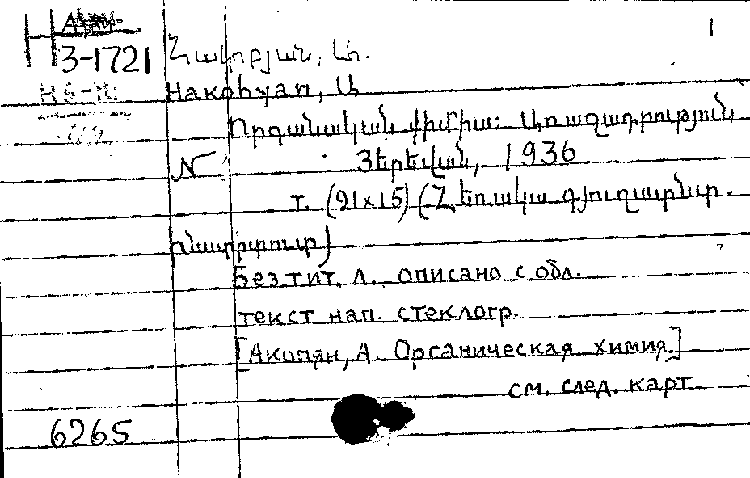 1
Н
3-1721
Հակոբյան, Ա.
Hakobyan, Ա
Որգանական քիմիա: Առազադրություն
Յերեվան, 1936
т. (21x15) (Հեռակա գյուղատնտ.
ինստիտուտ)
Без тит. л. описано с обл.
текст нап. стеклогр.
[Акопян, А. Органическая химия.]
см. след. карт.
6265